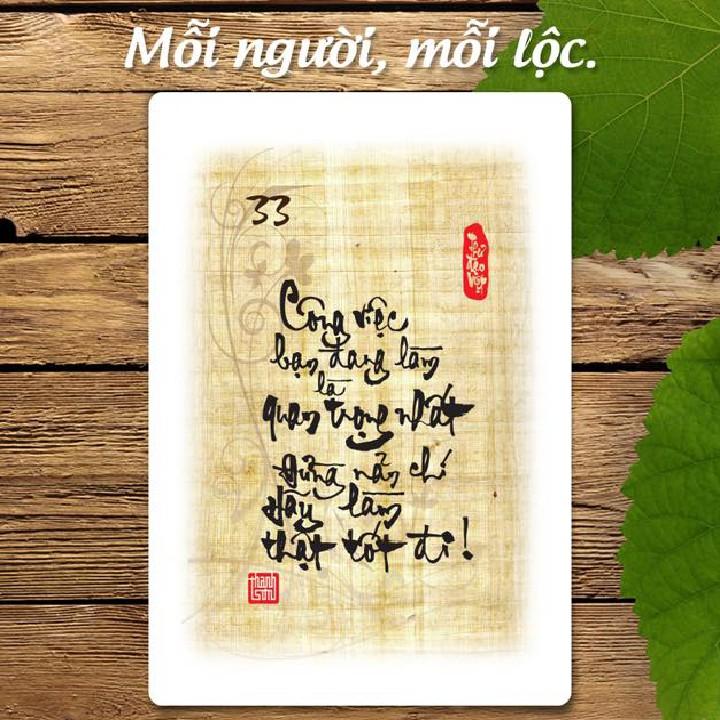 Mỗi người, mỗi lộc.
33
Công việc
bạn đang làm
là
quan trọng nhất
đừng nản chí
hãy làm
thật tốt đi!
thanh
sơn